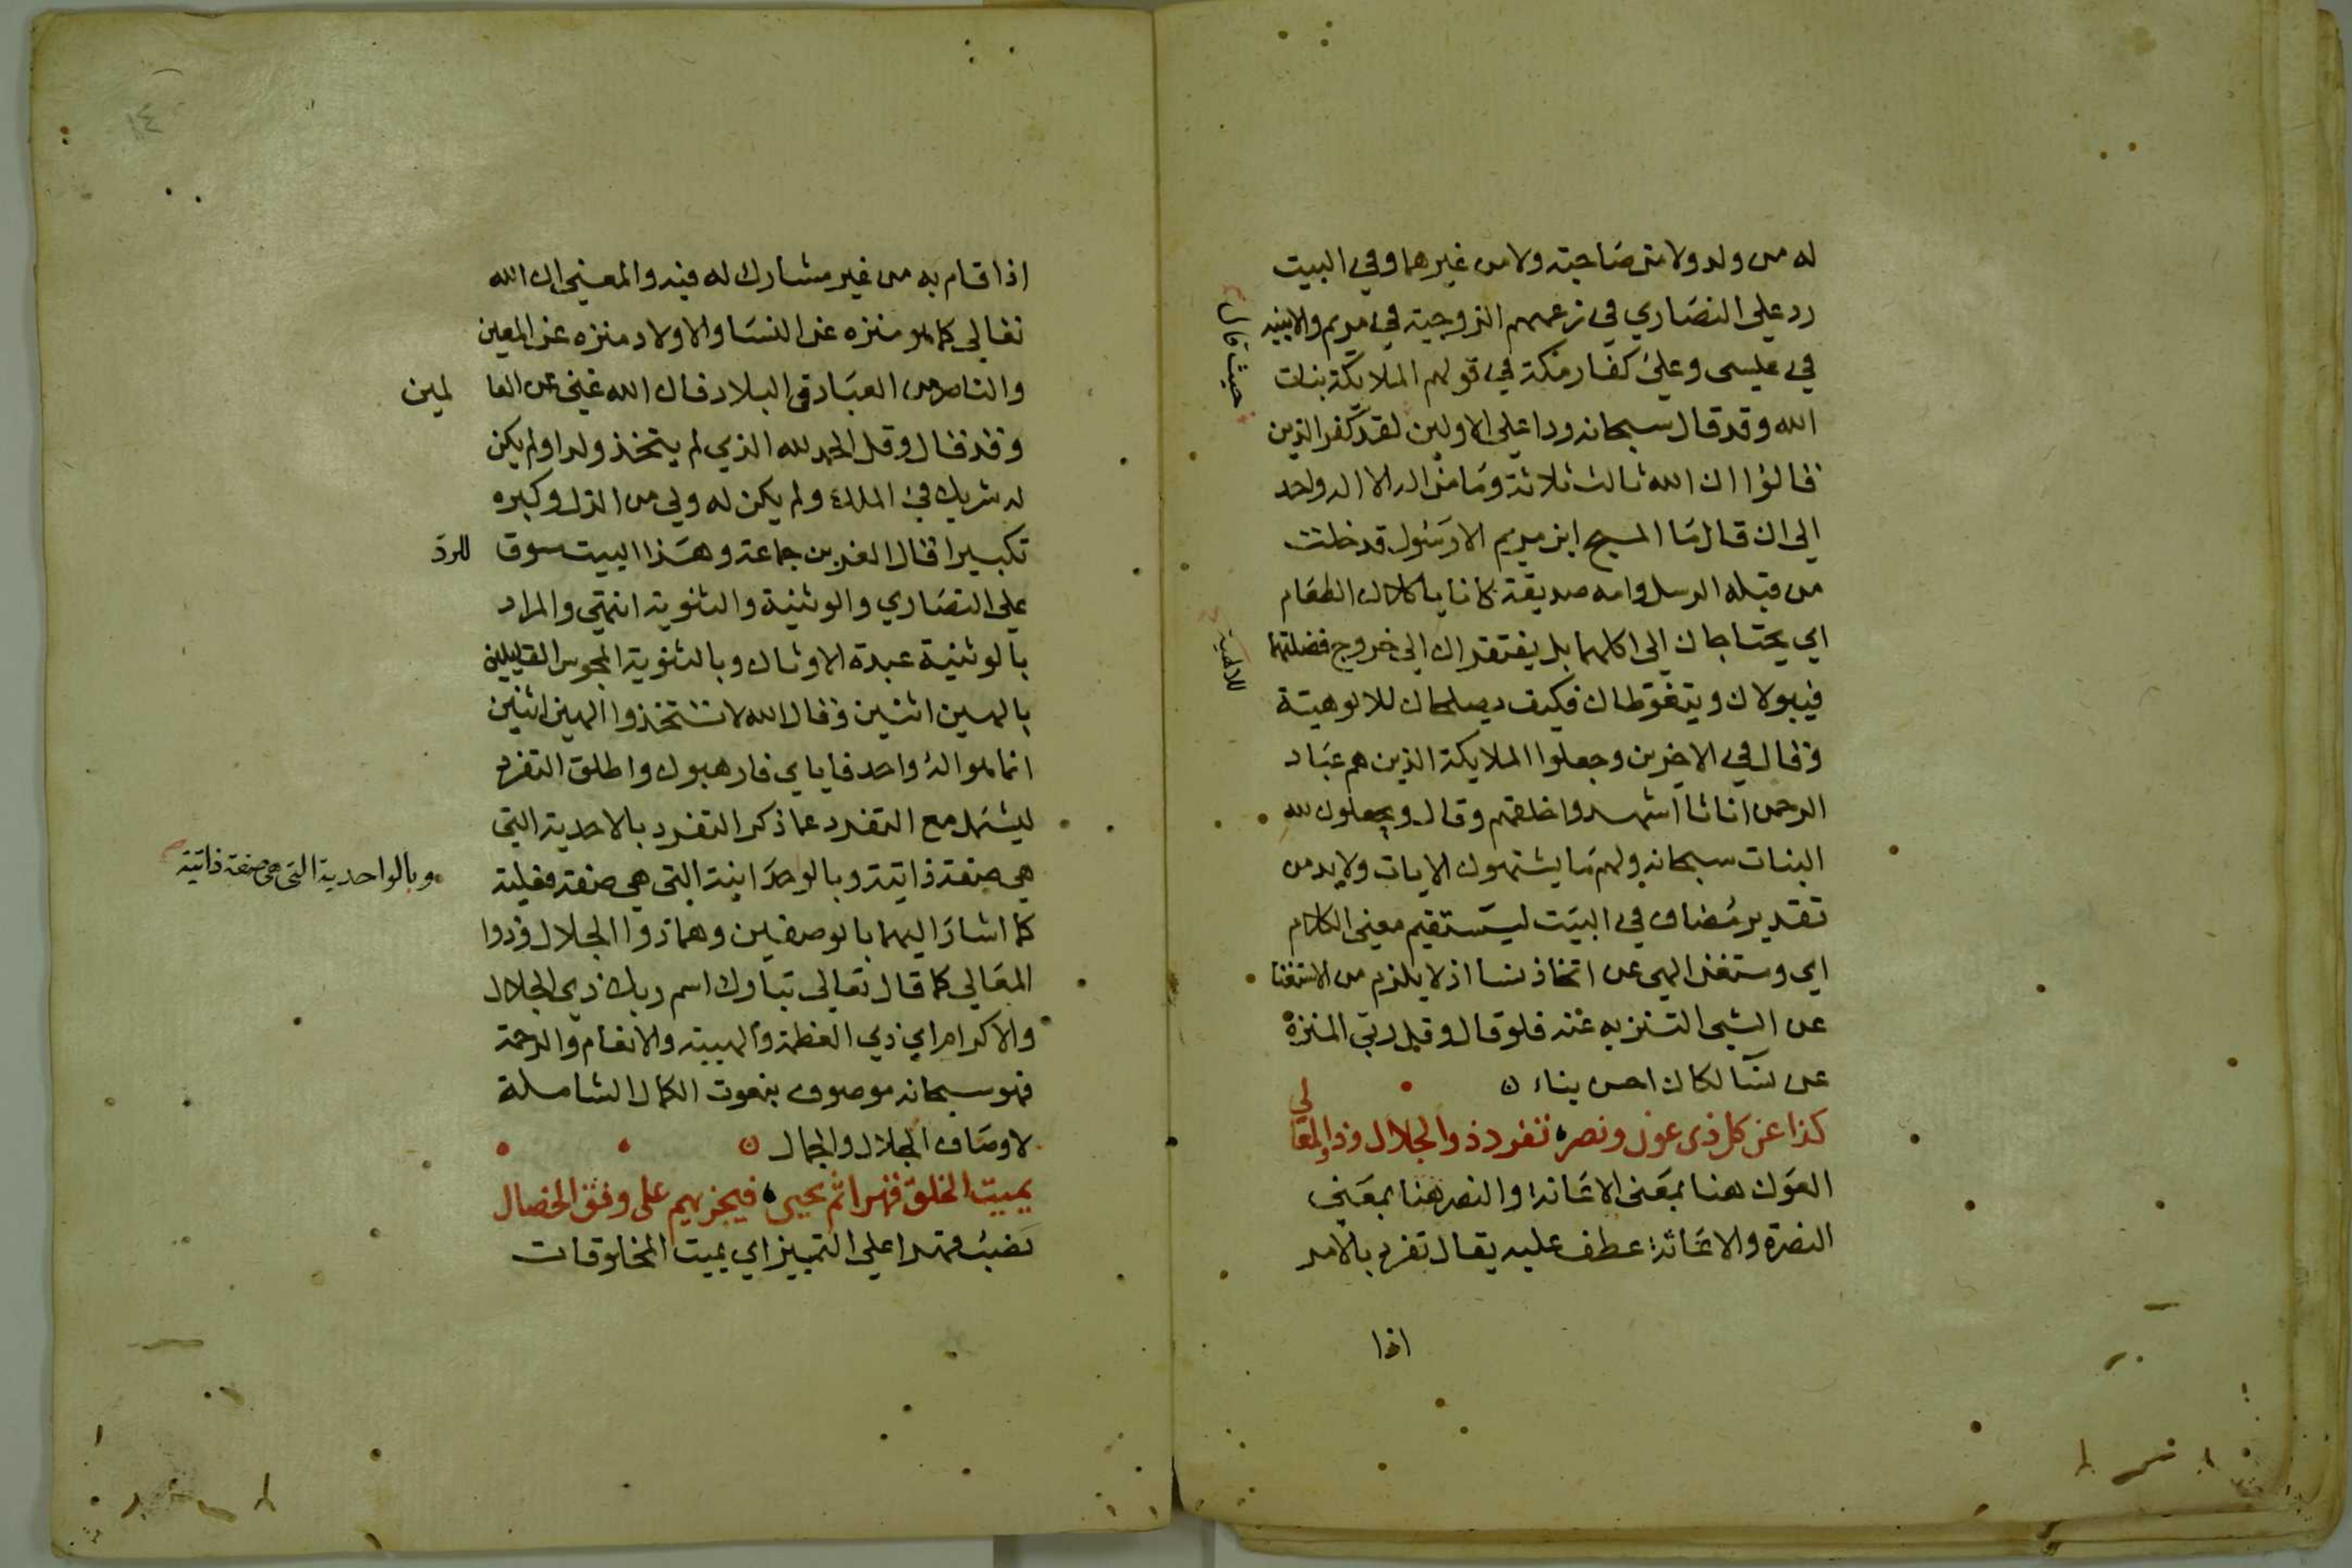 له من ولد ولا من صاحبة ولا من غيرهما وفي البيت
رد علي النصاري في زعمهم الزوجية في مريم والابنيه
في عيسى وعلي كفار مكة في قولهم الملايكة بنات
حيث قال
الله وقد قال سبحانه ردا علي الاولين لقد كفر الذين
قالوا ان الله ثالث ثلاثة وما من اله الا اله واحد
الي ان قال ما المسيح ابن مريم الا رسول قد خلت
من قبله الرسل وامه صديقة كانا ياكلان الطعام
اي يحتاجان الي اكلهما بل يفتقران الي خروج فضلتهما
فيبولان ويتغوطان فكيف يصلحان للالوهية
للالهية
وقال في الاخرين وجعلوا الملايكة الذين هم عباد
الرحمن اناثا اشهدوا خلقهم وقال ويجعلون لله
البنات سبحانه ولهم ما يشتهون الايات ولابد من
تقدير مضاف في البيت ليستقيم معني الكلام
اي ومستغن الهي عن اتخاذ نسا اذ لا يلزم من الاستغنا
عن الشي التنزيه عنه فلو قال وقل ربي المنزه
عن نسا لكان احسن بناء ن
كذا عن كل ذى عون ونصر ه تفرد ذو الجلال وذو المعالي
العون هنا بمعنى الاعانة والنصر هنا بمعني
النصرة والاغاثة عطف عليه يقال تفرد بالامر
اذا
١٤
اذا قام به من غير مشارك له فيه والمعني ان الله
تعالي كما هو منزه عن النسا والاولاد منزه عن المعين
والناصر من العباد في البلاد قال الله غني عن العالمين
وقد قال وقل الحمد لله الذي لم يتخذ ولدا ولم يكن
له شريك في الملك ولم يكن له ولي من الذل وكبره
تكبيرا قال العز بن جماعة وهذا البيت سوق للرد
علي النصاري والوثنية والثنوية انتهي والمراد
بالوثنية عبدة الاوثان وبالثنوية المجوس القايلين
بالهين اثنين وقال الله لا تتخذوا الهين اثنين
انما هو اله واحد فاياي فارهبون واطلق التفرد
ليشمل مع التفرد عما ذكر التفرد بالاحدية التي
هي صفة ذاتية وبالوحدانية التي هي صفة فعلية
وبالواحدية التي هي صفة ذاتية
كما اشار اليهما بالوصفين وهما ذوا الجلال وذوا
المعالي كما قال تعالي تبارك اسم ربك ذي الجلال
والاكرام اي ذي العظمة والهيبة والانعام والرحمة
فهو سبحانه موصوف بنعوت الكمال الشاملة
لاوصاف الجلال والجمال ن
يميت الخلق قهرا ثم يحيي ه فيجزيهم على وفق الخصال
نصب قهرا علي التمييز اي يميت المخلوقات